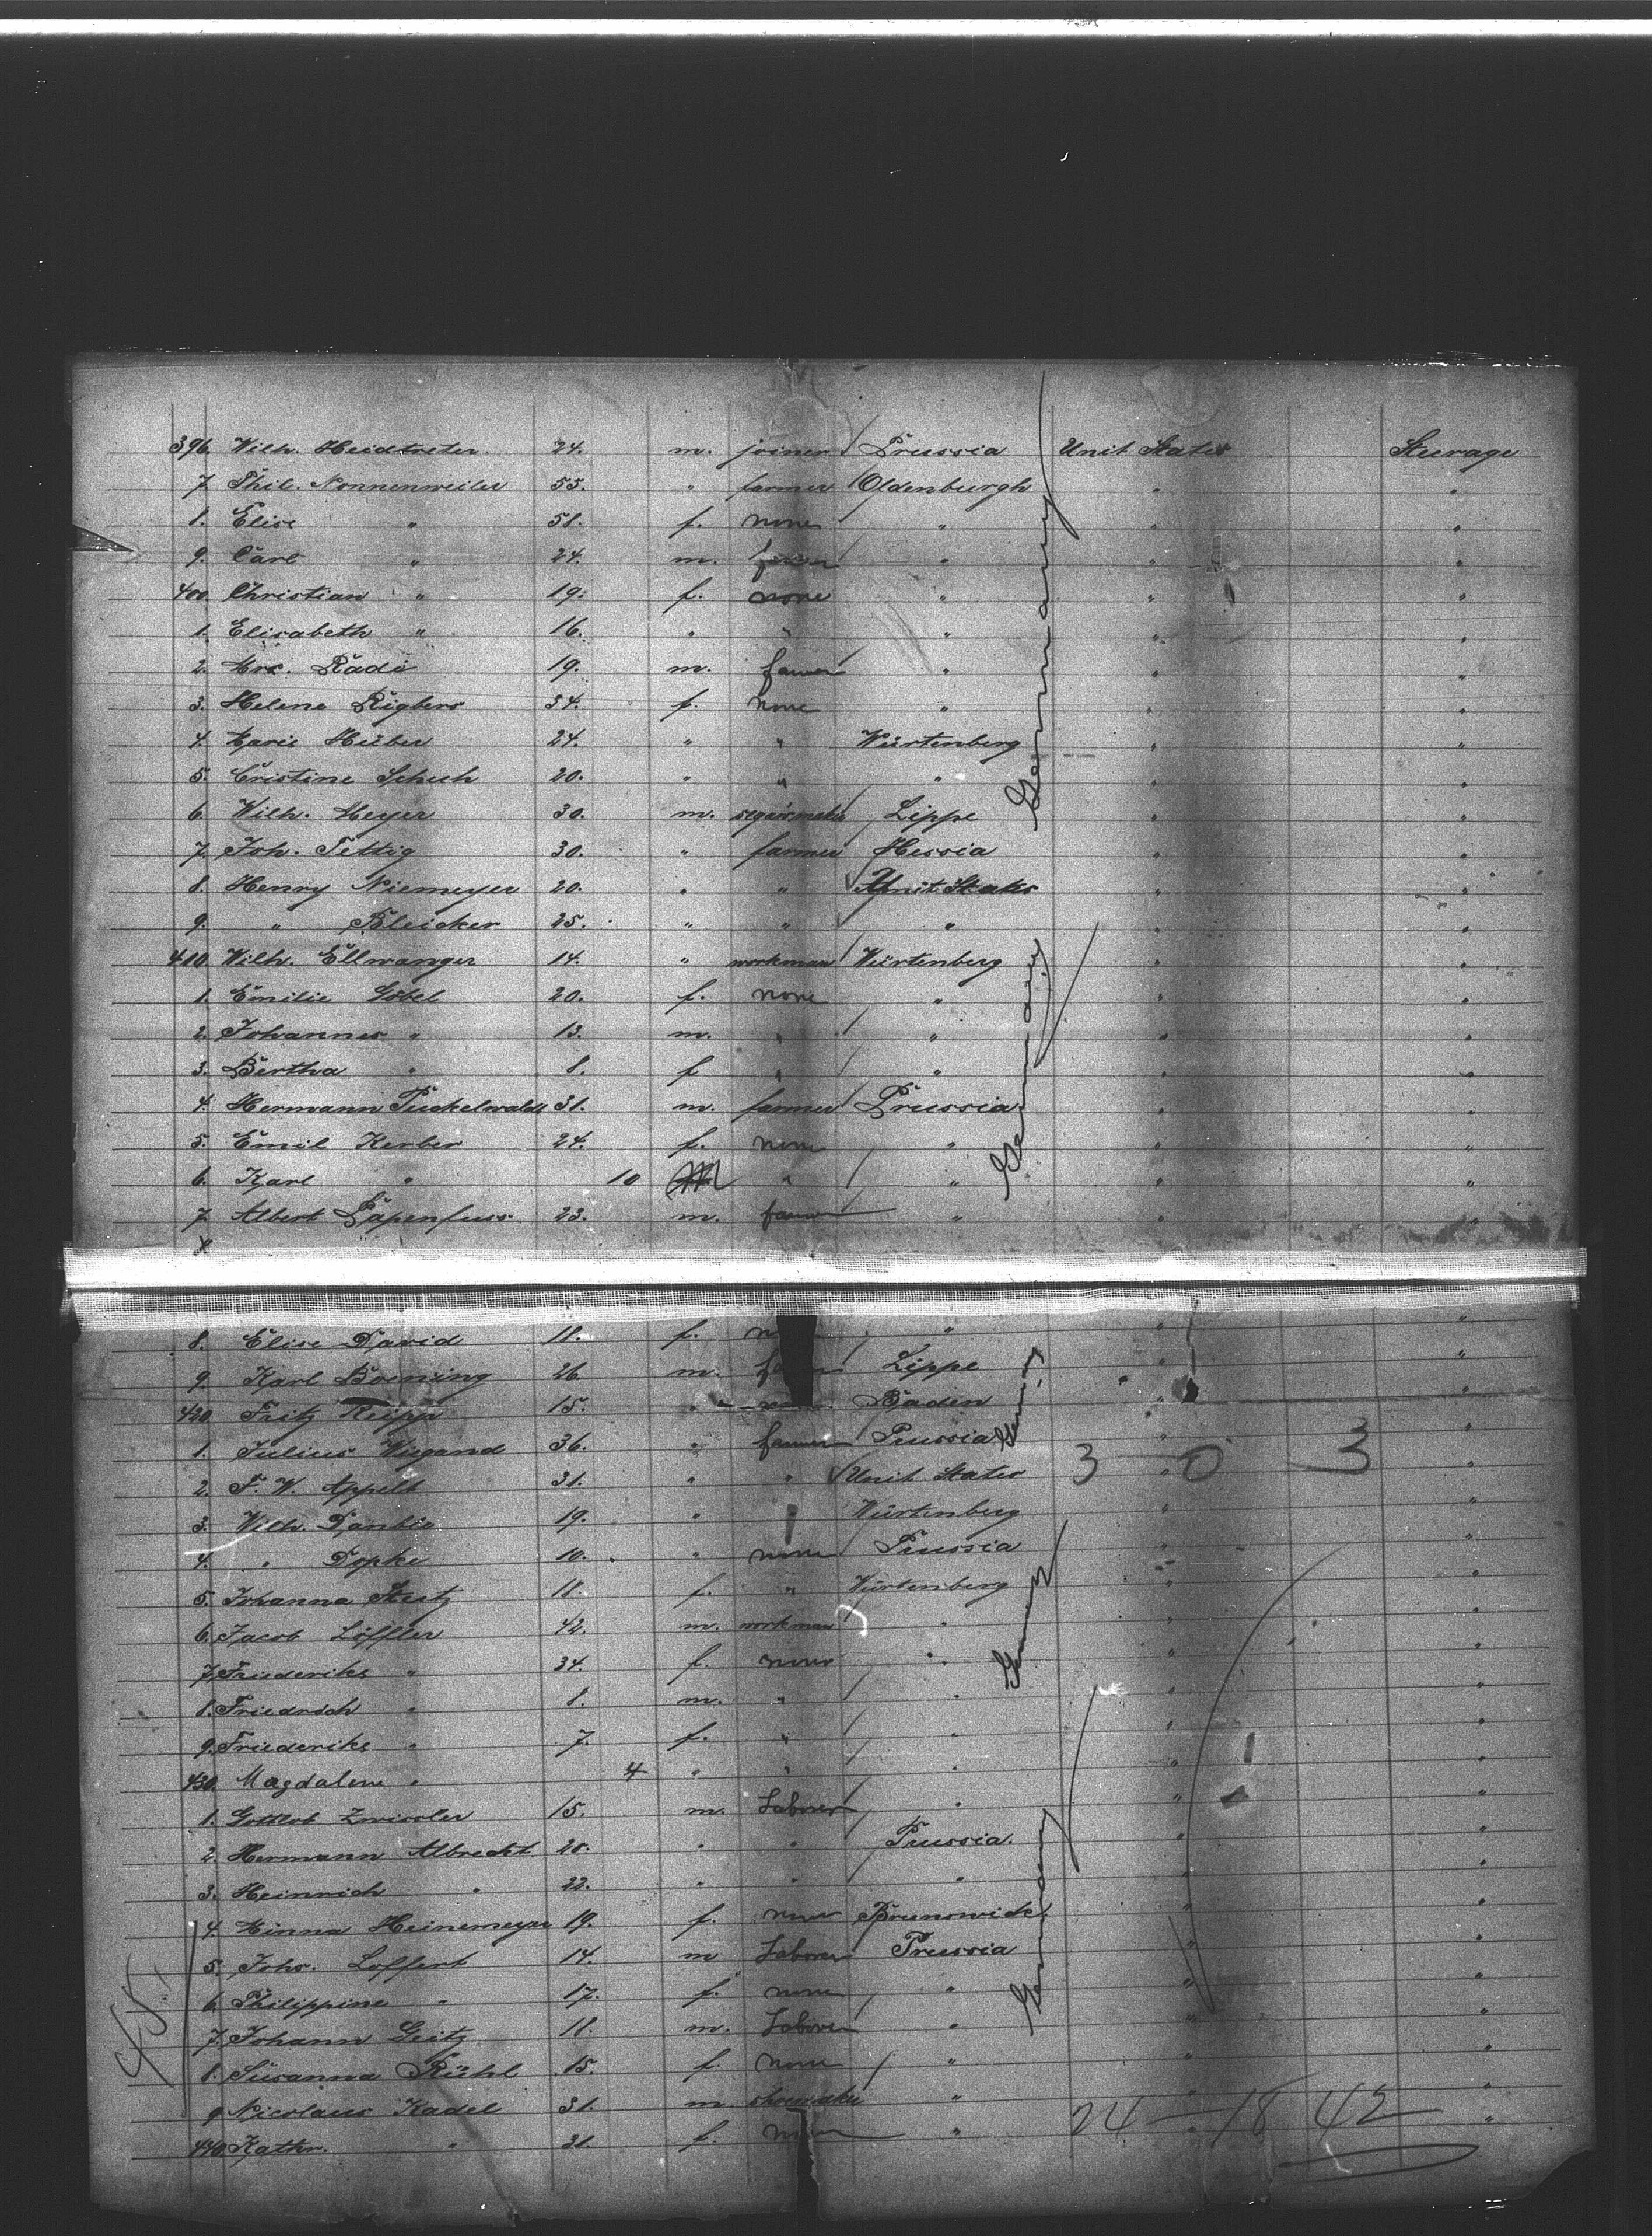 396. Wilh. Heidtreter. 24. m. joiner Prussia Unit States Steerage
7. Phil. Nonnenweiler 55. " farmer Oldenburgh " "
8. Elise " 58. f. none " " "
9. Carl " 24. m. " " "
400. Christian " 19. f. none " " "
1. Elisabeth " 16. " " " " "
2. Rädi 19. m. farmer " " "
3. Helene Rigbers 34. f. none " " "
4. Marie Hüber 24. " " Würtenberg " "
5. Cristine Schuh 20. " " " " "
6. Wilh. Meyer 30. m. segarmaker Lippe " "
7. Joh. Tettig 30. " farmer Hessia " "
8. Henry Niemeyer 20. " " Unit States " "
9. " Bleicker 25. " " " " "
410. Wilh. Ellwanger 14. " workman Würtenberg " "
1. Emilie Göbel 20. f. none " " "
2. Johannes " 13. m. " " " "
3. Bertha " 8. f " " " "
4. Hermann Puckelwaldt 31. m. farmer Prussia " "
5. Emil Kerber 24. f. none " " "
6. Karl " 10 M " " " "
7. Albert Papenfuss 23. m. farmer " " "
Germany
Germany
8. Elise David 18. f. " " "
9. Karl Boening 26 m. Lippe " "
420. Fritz Reipp 15. " Baden " "
1. Julius Wiegand 36. " farmer Prussia " "
2. F. W. Appelt 31. " " Unit States " "
3 0 3
3. Wilh. 19. " Würtenberg " "
4. " Dopke 10. " none Prussia " "
5. Johanna Stutz 18. f. " Würtenberg " "
6. Jacob Löffler 42. m. workman " " "
7. Friederike " 34. f. none " " "
8. Friedrich " 8. m. " " " "
9. Friederike " 7. f. " " " "
430. Magdalene " 4 " " " " "
1. Gottlob Zwissler 15. m. Laborer " " "
2. Hermann Albrecht 28. " " Prussia. " "
3. Heinrich " 22. " " " " "
4. Minna Heinemeyer 19. f. none Brunswick " "
5. Johs. Loffert 14. m Laborer Prussia " "
6. Philippine " 17. f. none " " "
7. Johann Geitz 18. m. Laborer " " "
8. Susanna Rühl 15. f. none " " "
9. Nicolaus Kadel 31. m. shoemaker " " "
440. Kathr. " 31. f. none " " "
Germany
Germany
Germany
45
24 18 42